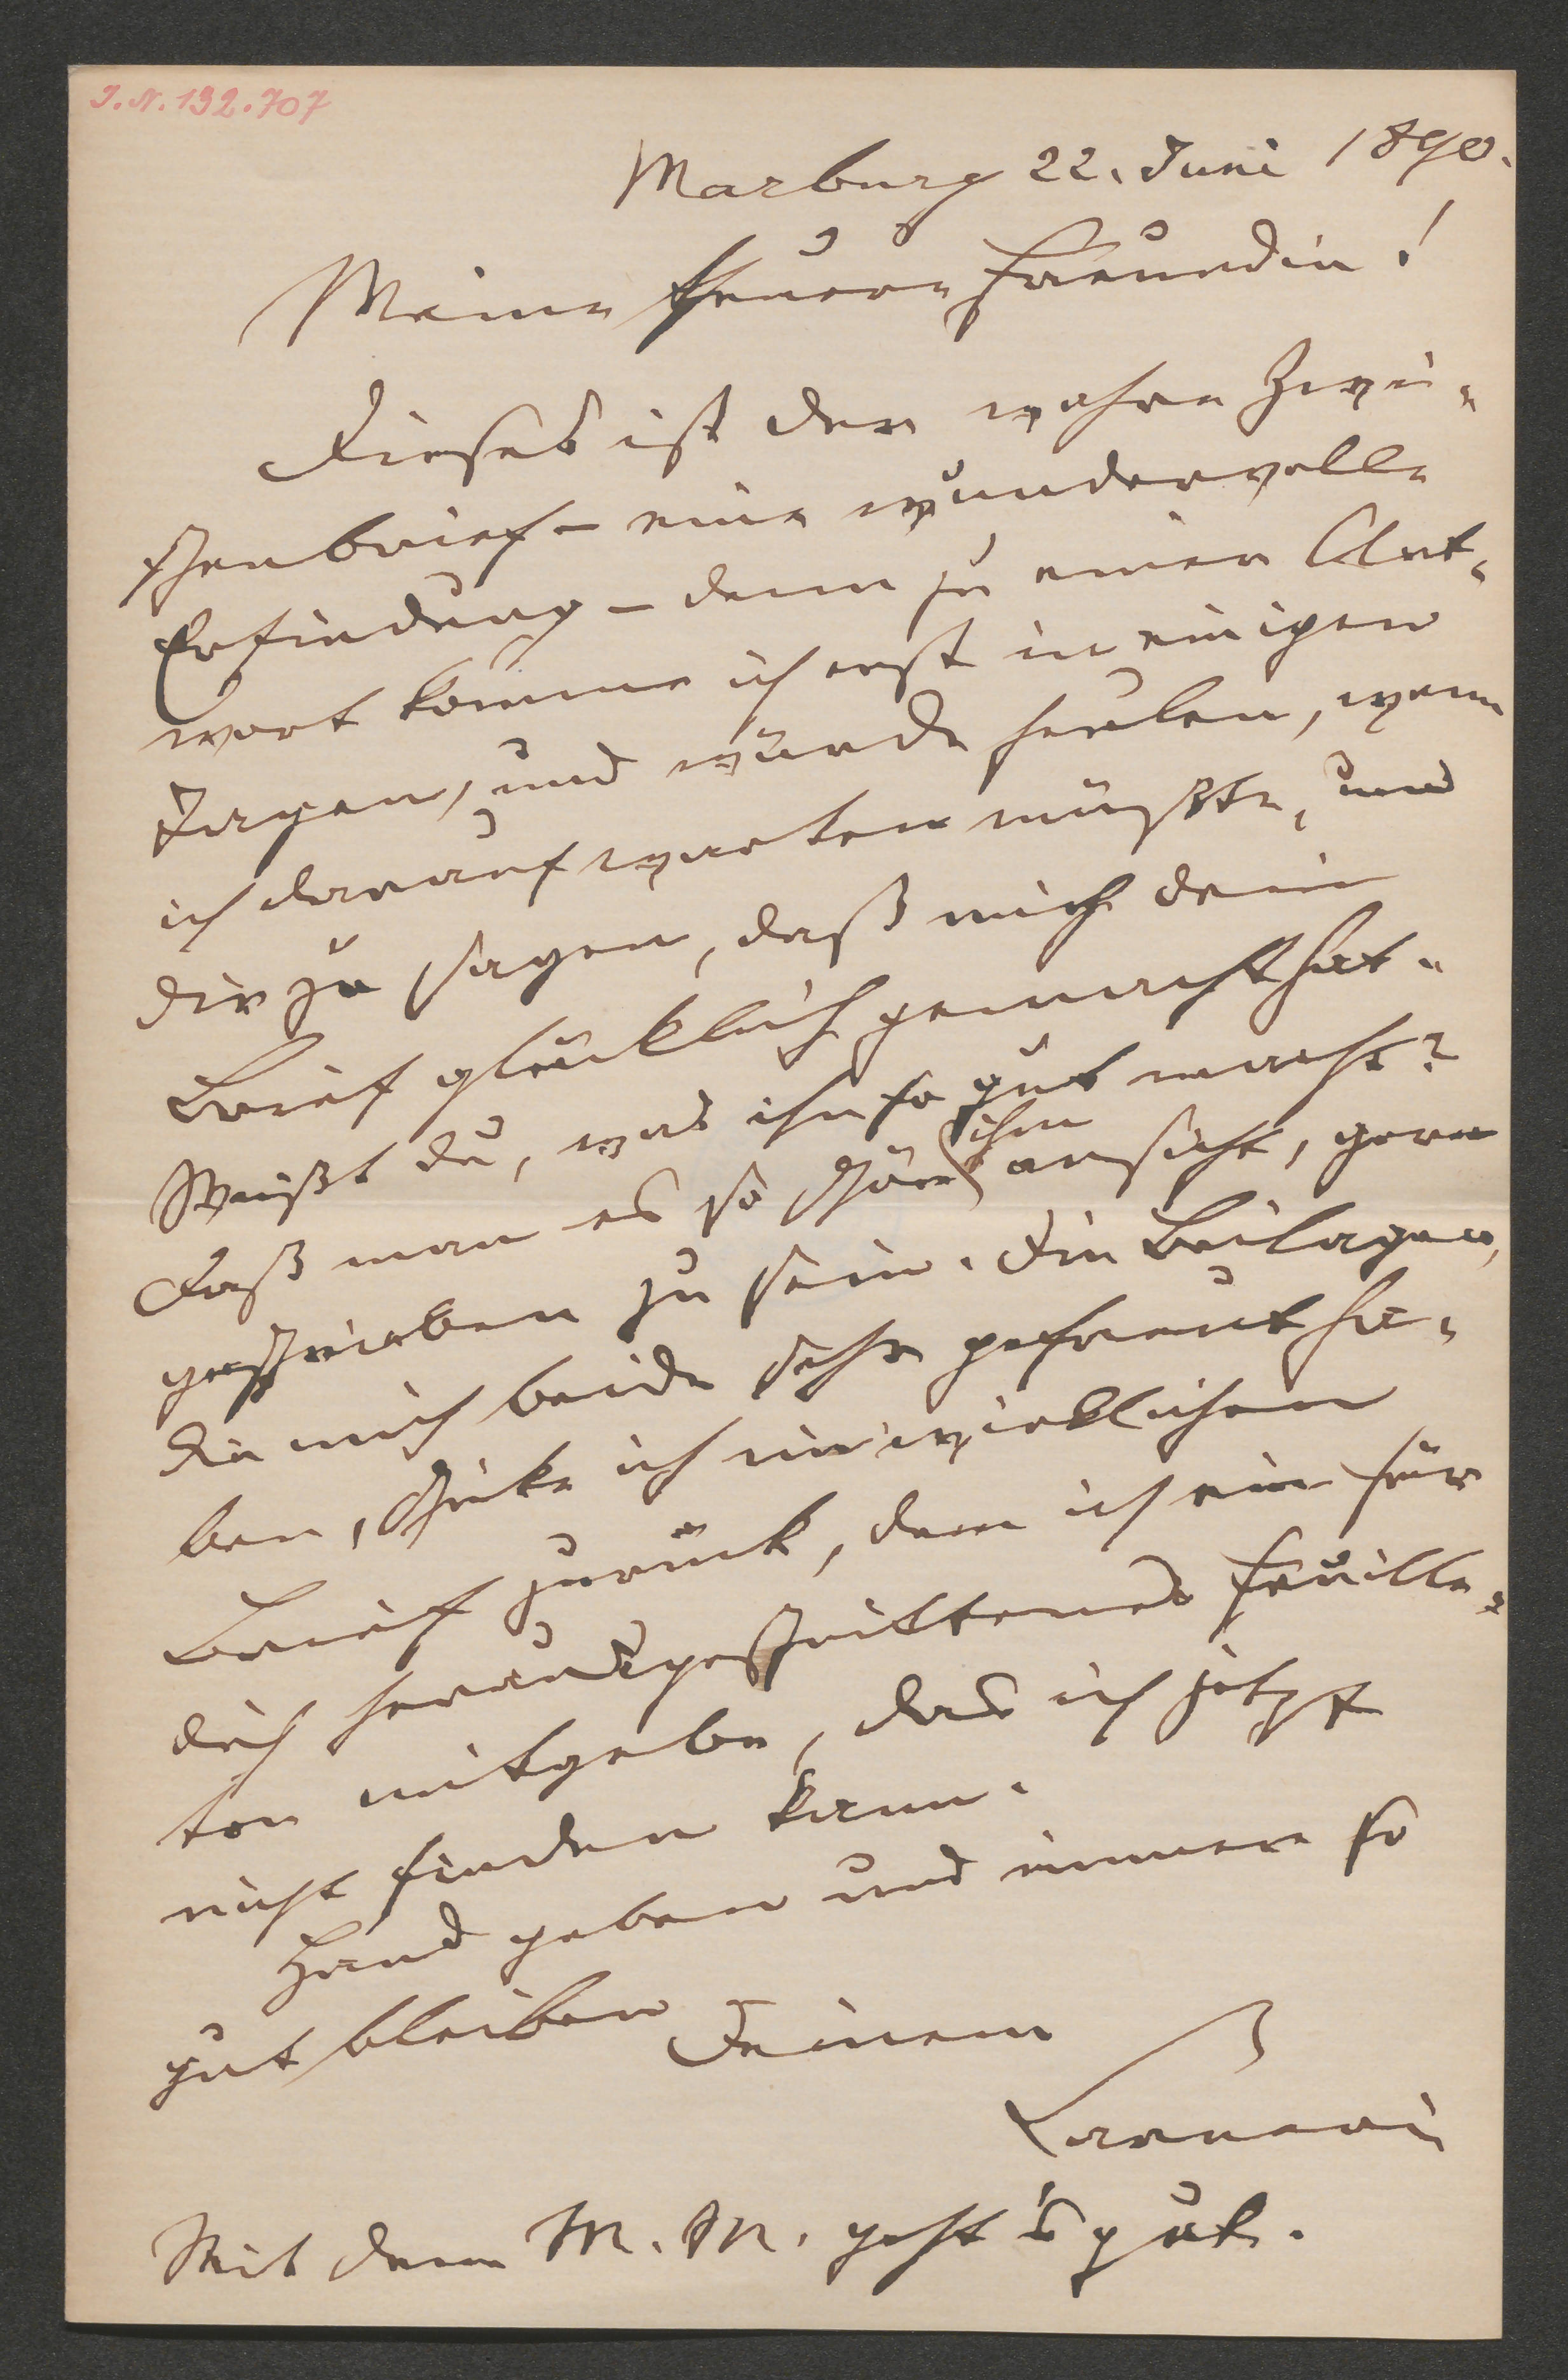 I. N. 192.707
Marburg 22. Juni 1890.
Meine theuere Freundin!
Dieses ist der wahre Zwi-
schenbrief – eine wundervolle
Erfindung – denn zu einer Ant-
wort komme ich erst in einigen
Tagen, und würde heulen, wenn
ich darauf warten müßte, um
dir zu sagen, daß mich dein
Brief glücklich gemacht hat.
Weißt du, was ihn so gut macht?
Daß man es so schön ihm ansieht, gern
geschrieben zu sein. Die Beilagen,
die mich beide sehr gefreut ha-
ben, schicke ich im wirklichen
Brief zurück, dem ich ein für
dich herausgeschnittenes Feuille-
ton mitgebe, das ich jetzt
nicht finden kann.
Hand geben und immer so
gut bleiben Deinem
Carneri
Mit dem M. M. geht's gut.